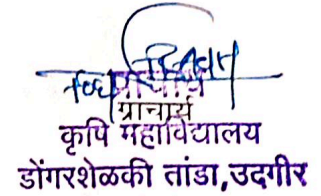 प्राचार्य
प्राचार्य
कृषि महाविद्यालय
डोंगरशेळकी तांडा,उदगीर